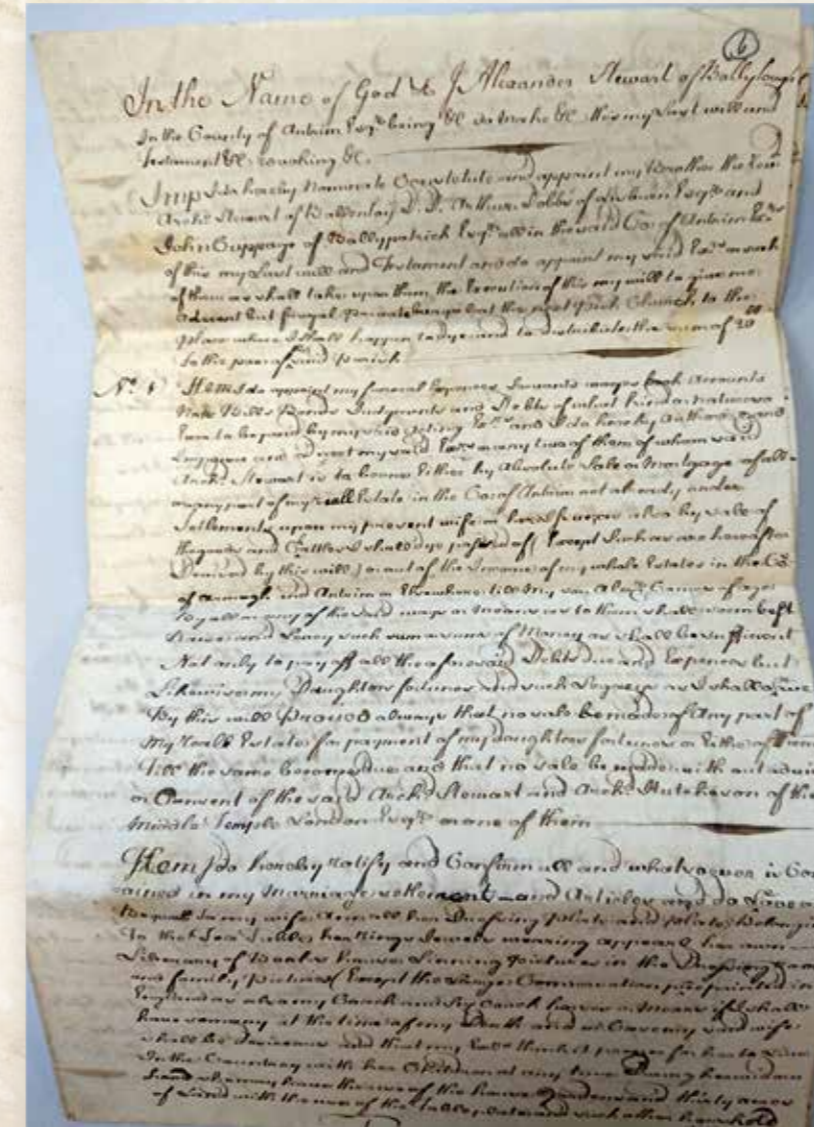 6
In the Name of God &c I Alexander Stewart of Ballylough
In the County of Antrim Esqr being &c do make &c this my Last will and
Testament &c revoaking &c
Imp I do hereby Nominate Constitute and appoint my Brother the Revd
Archd Stewart of Ballentoy D. D. Arthur Dobbs of Lisburn Esqr and
John Cuppage of Ballypatrick Esqr all in the said Co: of Antrim Exrs
of this my Last will and Testament and do appoint my said Exrs or such
of them as shall take upon them the Execution of this my will to give me
decent but frugal Private the next Parish Church to the
place where I shall happen to dye and to distribute the sum of 20
to the poor of said parish
No. 1 Item I do appoint my funeral Expences Servants wages Book Accounts
Notes Bills Bonds Judgments and Debts of what kind or nature
to be paid by my said acting Exrs and I do hereby Authorize and
Impower and direct my said Exrs or any two of them of whom said
Archd Stewart is to be one Either by Absolute Sale or Mortgage of all
or any part of my reall Estate in the Co: of Antrim not already under
Settlement upon my present wife or also by sale of
the goods and Chattles I shall dye possed of (Except Such as are hereafter
Devised by this will) or out of the Income of my whole Estates in the Co:
of Armagh and Antrim or Elsewhere till my son Alexr Comes of age
by all or any of the said ways or Means as to them shall seem best
Raise and Levey such sum or sums of Money as shall be sufficient
Not only to pay off all the aforesaid Debts dues and Expences but
Likewise my Daughters fortunes and such Legacys as I shall
By this will Provided always that no sale be made of Any part of
My reall Estates for payment of my daughters fortunes or Either of them
Till the same becomes due and that no sale be made with out
or Consent of the said Archd Stewart and Archd Hutcheson of the
Middle Temple London Esqr or one of them
Item I do hereby ratify and Confirm all and whatsoever is Con
ained in my Marriage settlement and Articles and do Leave
Bequeath to my wife Ann all her Dressing plate and plate belonging
To the Tea Table her Rings Jewels wearing appearel her own
Library of Books Linning Pictures in the Dressing Room
and family Pictures (Except the Large Conversation piece painted in
England) as also my Coach and Six Coach horses or Mares if I shall
have so many at the time of my Death and in Case my said wife
shall be desireous and that my Exrs think it proper for her to Live
In the Countrey with her Children at any time During
have the use of the house Gardens and thirty acres
of Land with the use of the Tables, plate and such other household